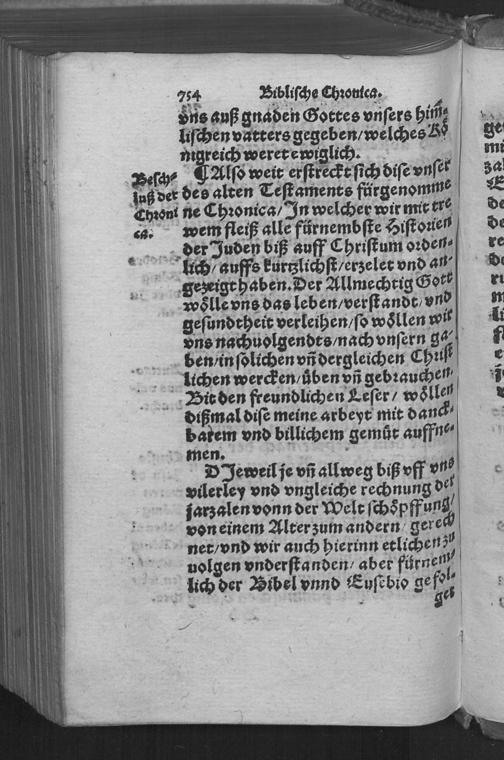 754 Biblische Chronica.
vns auß gnaden Gottes vnsers him̃-
lischen vatters gegeben/welches Kö
nigreich weret ewiglich.
Besch-
luß der
Chroni
ca.
¶Also weit erstreckt sich dise vnser
des alten Testaments fürgenomme
ne Chronica/In welcher wir mit tre
wem fleiß alle fürnembste Historien
der Juden biß auff Christum orden-
lich/auffs kürtzlichst/erzelet vnd an-
gezeigt haben.Der Allmechtig Gott
wölle vns das leben/verstandt/vnd
gesundtheit verleihen/so wöllen wir
vns nachuolgendts/nach vnsern ga-
ben/in solichen vñ dergleichen Christ
lichen wercken/üben vñ gebrauchen.
Bit den freundlichen Leser/ wöllen
dißmal dise meine arbeyt mit danck-
barem vnd billichem gemüt auffne-
men.
DJeweil je vñ allweg biß vff vns
vilerley vnd vngleiche rechnung der
jarzalen vonn der Welt schöpffung/
von einem Alter zum andern/gerech
net/vnd wir auch hierinn etlichen zu
uolgen vnderstanden/ aber fürnem-
lich der Bibel vnnd Eusebio gefol-
get